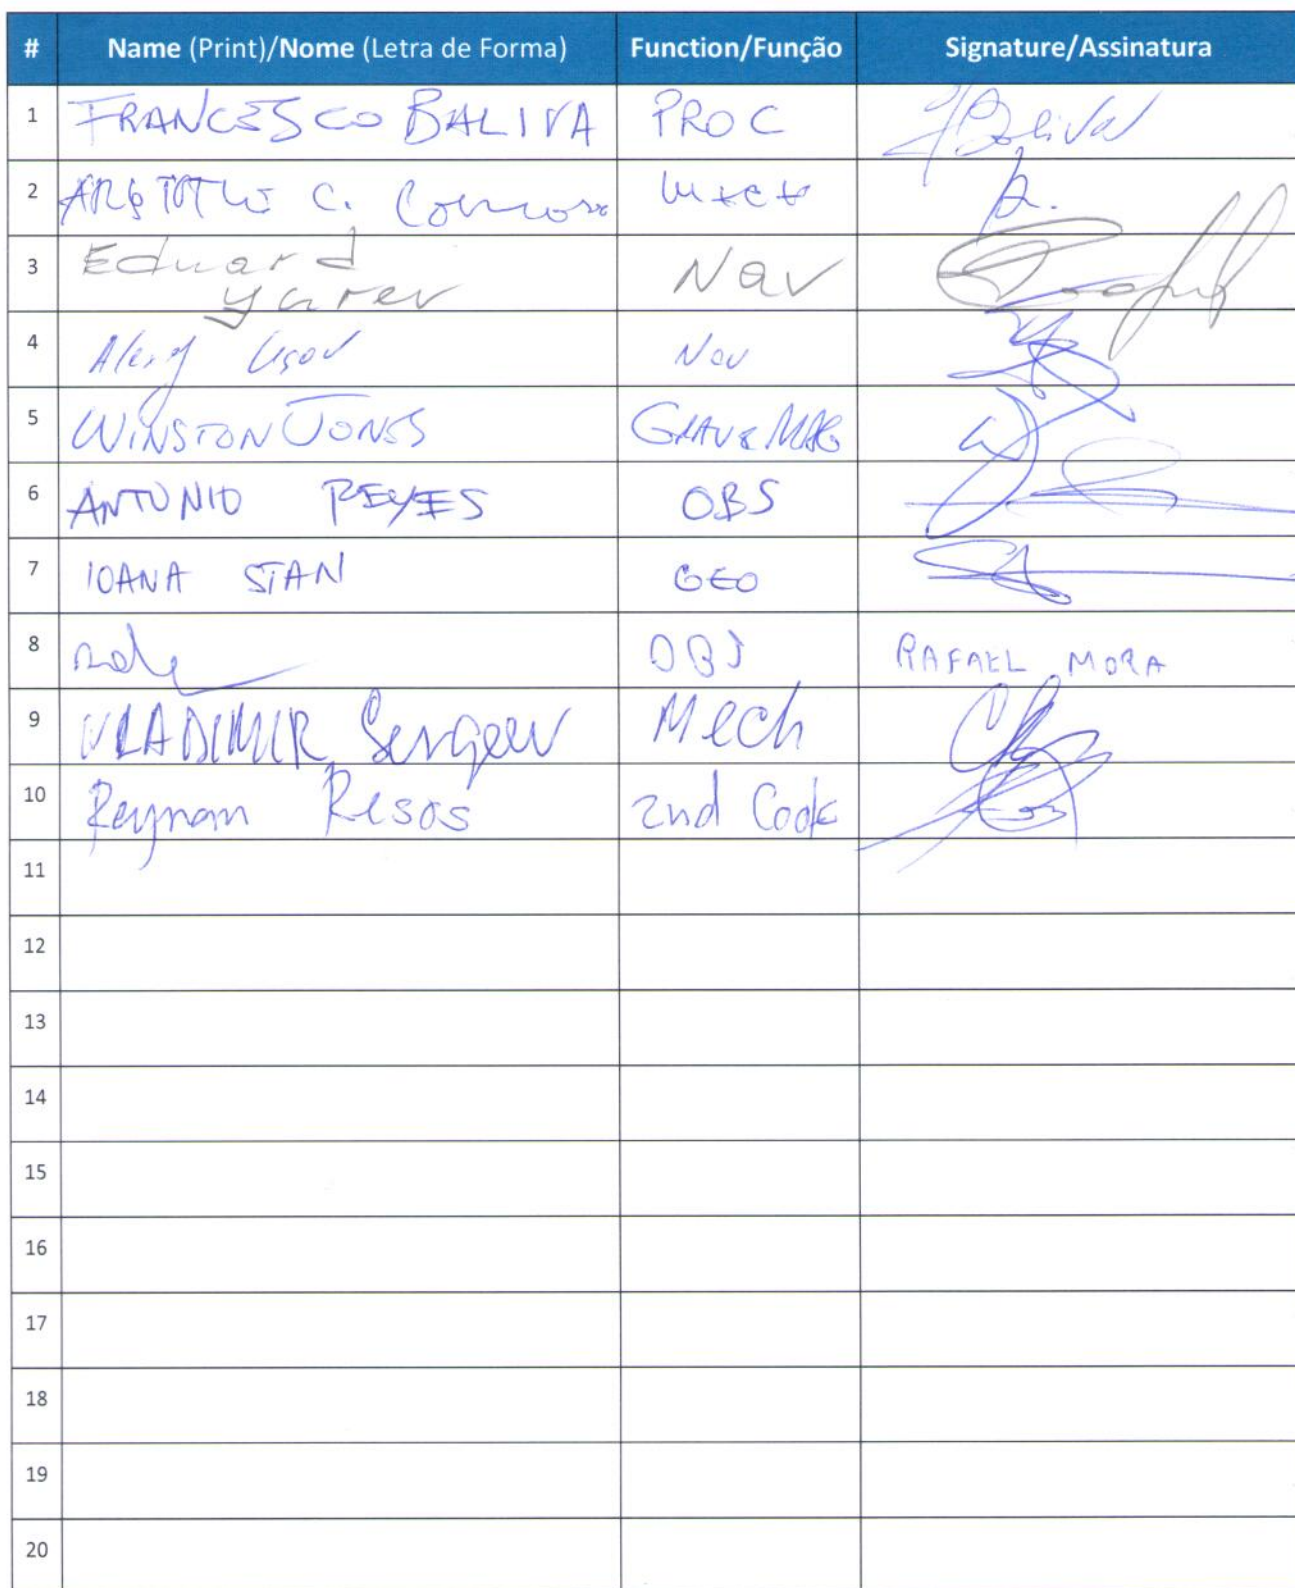 # Name (Print)/Nome (Letra de Forma) Function/Função Signature/Assinatura
1 FRANCESCO BALIVA PROC
2 C.
3 Eduard Nav
yarev
4 Usov Nav
5 WINSTON JONES GRAV & MAG
6 ANTONIO REYES OBS
7 IOANA STAN GEO
8 OBS RAFAEL MORA
9 VLADIMIR Sergeev Mech
10 Reynan Resos 2nd Cook
11
12
13
14
15
16
17
18
19
20